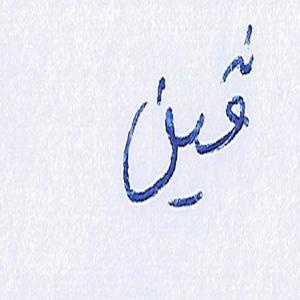 ثمين